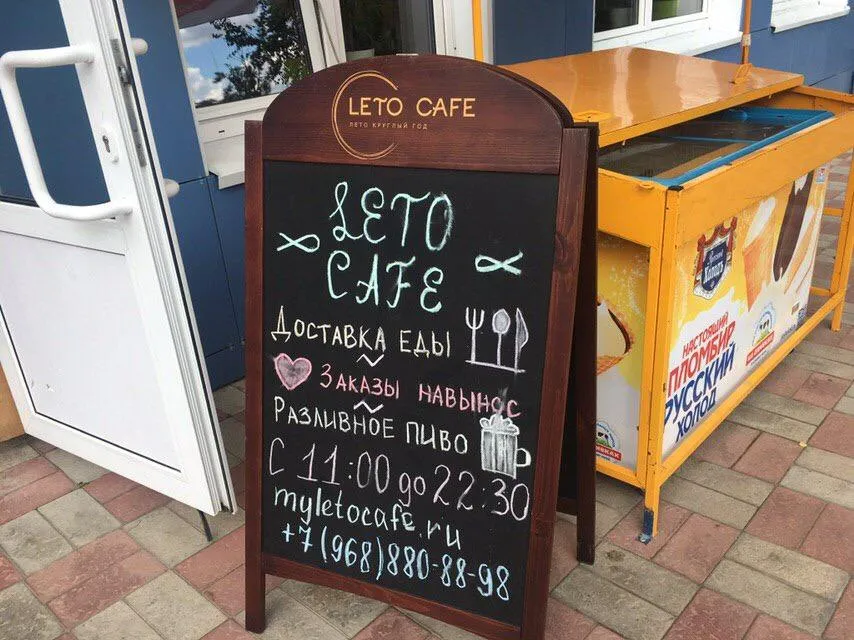 LETO CAFE
ЛЕТО КРУГЛЫЙ ГОД
LETO
CAFE
ДОСТАВКА ЕДЫ
ЗАКАЗЫ НАВЫНОС
РАЗЛИВНОЕ ПИВО
С 11:00 до 22:30
myletocafe.ru
+7(968)880-88-98
Русский
Холодъ
НАСТОЯЩИЙ
ПЛОМБИР
РУССКИЙ
ХОЛОД